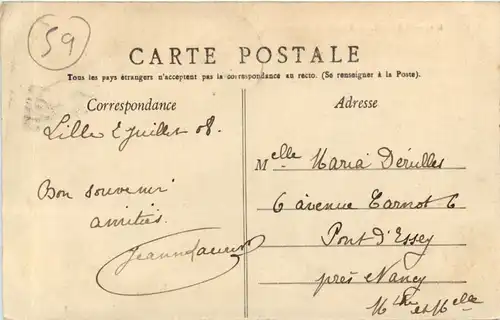 59
CARTE POSTALE
Tous les pays étrangers n'acceptent pas la correspondance au recto. (Se renseigner à la Poste).
Correspondance
Adresse
Lille 2 Juillet 08.
Melle Maria Dérulles
Bon souvenir
6 avenue Carnot 6
amitiés.
Pont d'Essey
près Nancy
Mthe et Melle